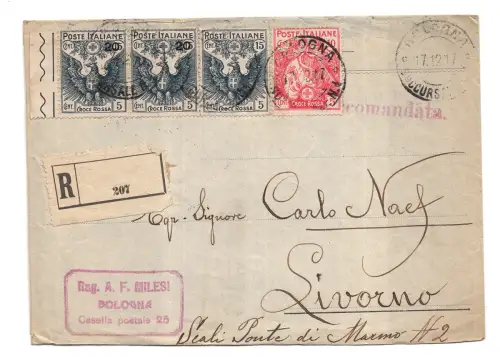 POSTE ITALIANE POSTE ITALIANE POSTE ITALIANE POSTE ITALIANE
CENT. 20 CENT. 20 CENT. 15
CENT. 5 CENT. 5 CENT. 5
CROCE ROSSA CROCE ROSSA CROCE ROSSA CROCE ROSSA
BOLOGNA
BOLOGNA
17.12.17
SUCCURS
comandata.
R
207
Egr. Signore Carlo Naef
Livorno
Scali Ponte di Marmo N 2
Rag. A. F. MILESI
BOLOGNA
Casella postale 25